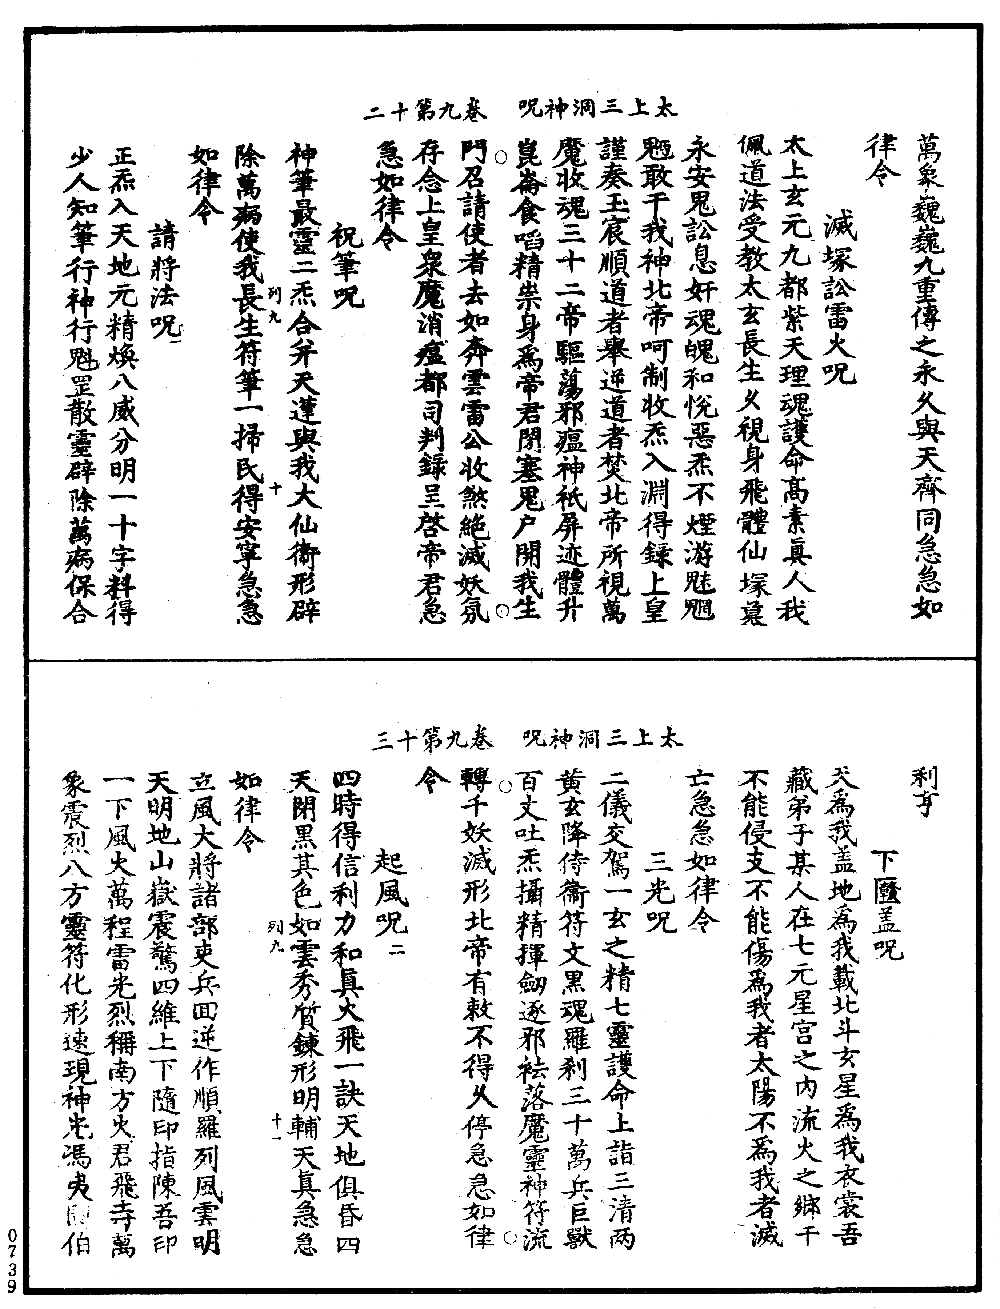 太上三洞神呪　卷九第十二
萬象巍巍九重傳之永久與天齊同急急如
律令
滅塚訟雷火呪
太上玄元九都紫天理魂護命高素眞人我
佩道法受教太玄長生久視身飛體仙塚墓
永安鬼訟息奸魂魄和悅惡炁不煙游魅魍
魎敢干我神北帝呵制收炁入淵得鍊上皇
謹奏玉宸順道者舉逆道者焚北帝所視萬
魔收魂三十二帝驅蕩邪瘟神祇屏迹體升
崑崙食啗精祟身爲帝君閉塞鬼户開我生
門召請使者去如奔雲雷公收煞絕滅妖氛
存念上皇衆魔消瘟都司判錄呈啓帝君急
急如律令
祝筆呪
神筆最靈二炁合并天蓬與我大仙衛形辟
列九
十
除萬病使我長生符筆一掃民得安寧急急
如律令
請將法呪
正炁入天地元精煥八威分明一十字料得
少人知筆行神行魁罡散靈辟除萬病保合
太上三洞神呪　卷九第十三
利亨
下匾盖呪
天爲我盖地爲我載北斗玄星爲我衣裳吾
藏弟子某人在七元星宫之内流火之鄉干
不能侵支不能傷爲我者太陽不爲我者滅
亡急急如律令
三光呪
二儀交駕一玄之精七靈護命上詣三清两
黄玄降侍衞符文黒魂羅刹三十萬兵巨獸
百丈吐炁攝精揮劔逐邪袪落魔靈神符流
轉千妖滅形北帝有敕不得久停急急如律
令
起風呪二
四時得信利力和眞火飛一訣天地俱昏四
天閉黒其色如雲秀質鍊形明輔天眞急急
列九
十一
如律令
立風大將諸部吏兵回逆作順羅列風雲明
天明地山嶽震驚四維上下隨印指陳吾印
一下風火萬程雷光烈稱南方火君飛寺萬
象震烈八方靈符化形速現神光馮夷風伯
0739